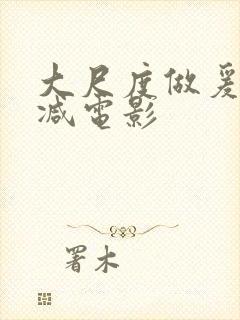 大尺度做爰
减电影
署木